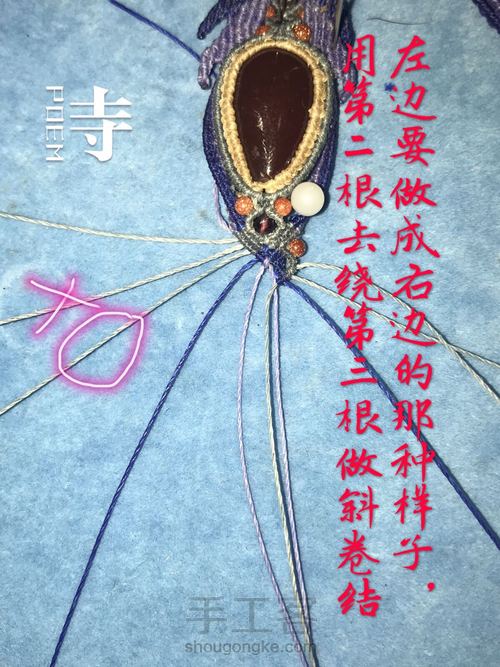 左边要做成右边的那种样子，
用第二根去绕第三根做斜卷结
寺
POEM
右
手工客
shougongke.com